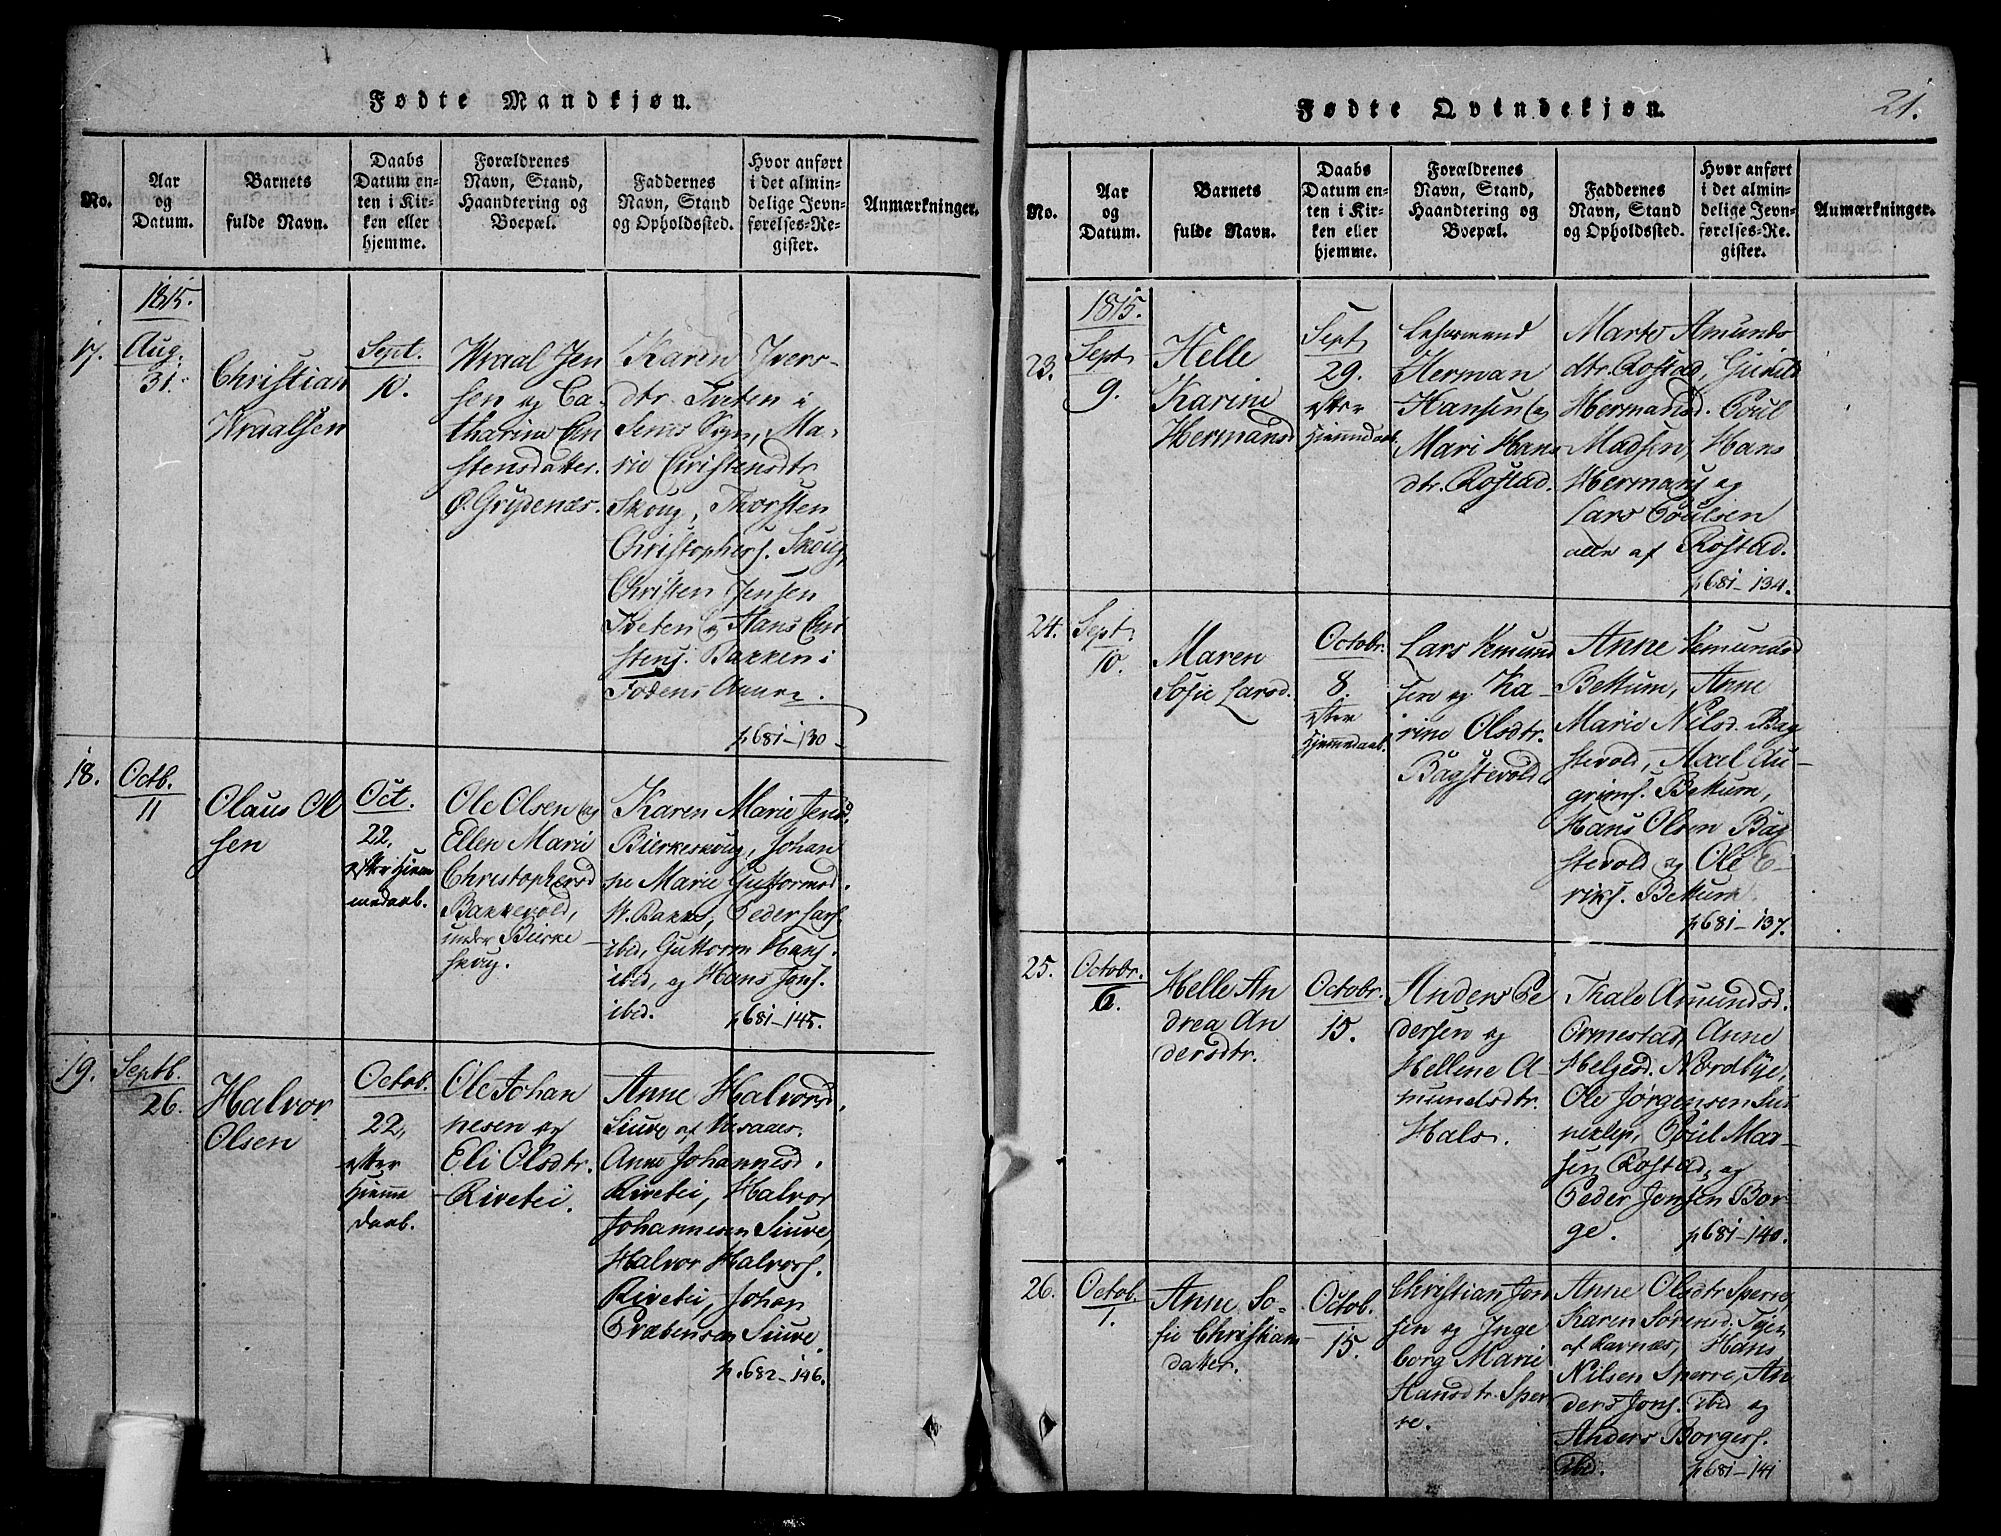 Fødte Mandkjøn.
No.
Aar
og
Datum.
Barnets
fulde Navn.
Daabs
Datum en-
ten i Kir-
ken eller
hjemme.
Forældrenes
Navn, Stand,
Haandtering og
Boepæl.
Faddernes
Navn, Stand
og Opholdssted.
Hvor anført
i det almin-
delige Jevn-
førelses-Re-
gister.
Anmærkninger.
17.
1815.
Aug.
31.
Christian
Wraalsen
Sept.
10.
Wraal Jen
sen og Ca-
tharina Chri
stensdatter.
Ø. Grydenæs.
Karen Ivers-
dtr. Tveten i
Senes Sogn, Ma-
rie Christensdtr
Skoug, Thorsten
Christophers. Skoug,
Christen Jensen
Tveten og Hans Chri
stens. Bakken i
p681-130
18.
Octb.
11
Olaus Ol
sen
Oct.
22,
efter Hiem
medaab.
Ole Olsen og
Ellen Marie
Christophersd
Bakkevold,
under Bierke
skoug.
Karen Marie Jensd.
Bierkeskoug, Johan
ne Marie Guttormsd.
W. Bakke, Peder Lars.
ibid, Guttorm Hans.
ibid, og Hans Jons.
ibid.
p681-145.
19.
Septb.
26.
Halvor
Olsen
Octob.
22,
efter
Hiemme
daab.
Ole Johan
nesen og
Eli Olsdtr.
Rivetei.
Anne Halvorsd.
Siuve af
Anne Johannesd.
Rivetei, Halvor
Johannesen Siuve,
Halvor Halvors.
Rivetei, Johan
Præbensen Siuve.
p.682-146.
21.
Fødte Qvindekjøn.
No.
Aar
og
Datum.
Barnets
fulde Navn.
Daabs
Datum en-
ten i Kir-
ken eller
hjemme.
Forældrenes
Navn, Stand,
Haandtering og
Boepæl.
Faddernes
Navn, Stand
og Opholdssted.
Hvor anført
i det almin-
delige Jevn-
førelses-Re-
gister.
Anmærkninger.
23.
1815.
Sept.
9.
Helle
Karine
Hermansd
Sept
29.
efter
Hiemmedaab.
Herman
Hansen og
Mari Hans
dtr. Rostad.
Marte Amunds
dtr. Rostad, Gunild
Hermansd. Poul
Madsen, Hans
Hermans og
Lars Poulsen
alle af Rostad.
p681-134.
24.
Sept.
10.
Maren
Sofie Larsd.
Octobr.
8.
efter
Hjemmedaab.
Lars Kemund
sen og Ka-
rine Olsdtr.
Bagstevold
Anne Kemundsd
Bettum, Anne
Marie Nilsd. Bag
stevold, Axel Au-
grims. Bettum,
Hans Olsen Bag
stevold og Ole E-
riks. Bettum.
p681-137.
25.
Octobr.
6.
Helle An
drea An
dersdtr.
Octobr.
15.
Anders Pe
dersen og
Hellene A-
mundsdtr.
Hals.
Thale Amundsd.
Ormestad, Anne
Helgesd. Nordbye,
Ole Jørgensen Sun
neklep, Poul Mar-
sen Rostad, og
Peder Jensen Bor-
ge.
p681-140.
26.
Octob.
1.
Anne So-
fie Christians
datter.
Octob.
15.
Christian Jon
sen og Inge
borg Marie
Hansdtr. Sper-
re.
Anne Olsdtr Sperre,
Karen Sørensd.
af Havnæs, Hans
Nilsen Sperre, An
ders Jons. ibid og
Anders Borgers.
ibid.
p681-141